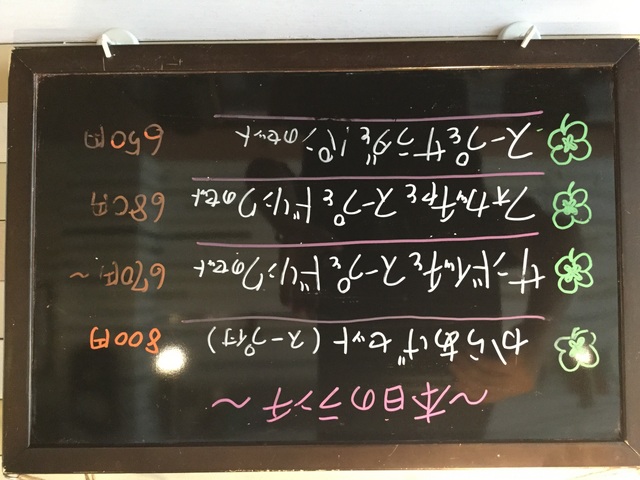 ～本日のランチ～
からあげセット(スープ付) 800円
サンドイッチとスープとドリンクのセット 670円～
フォカッチャとスープとドリンクのセット 680円
スープとサラダとパンのセット 650円